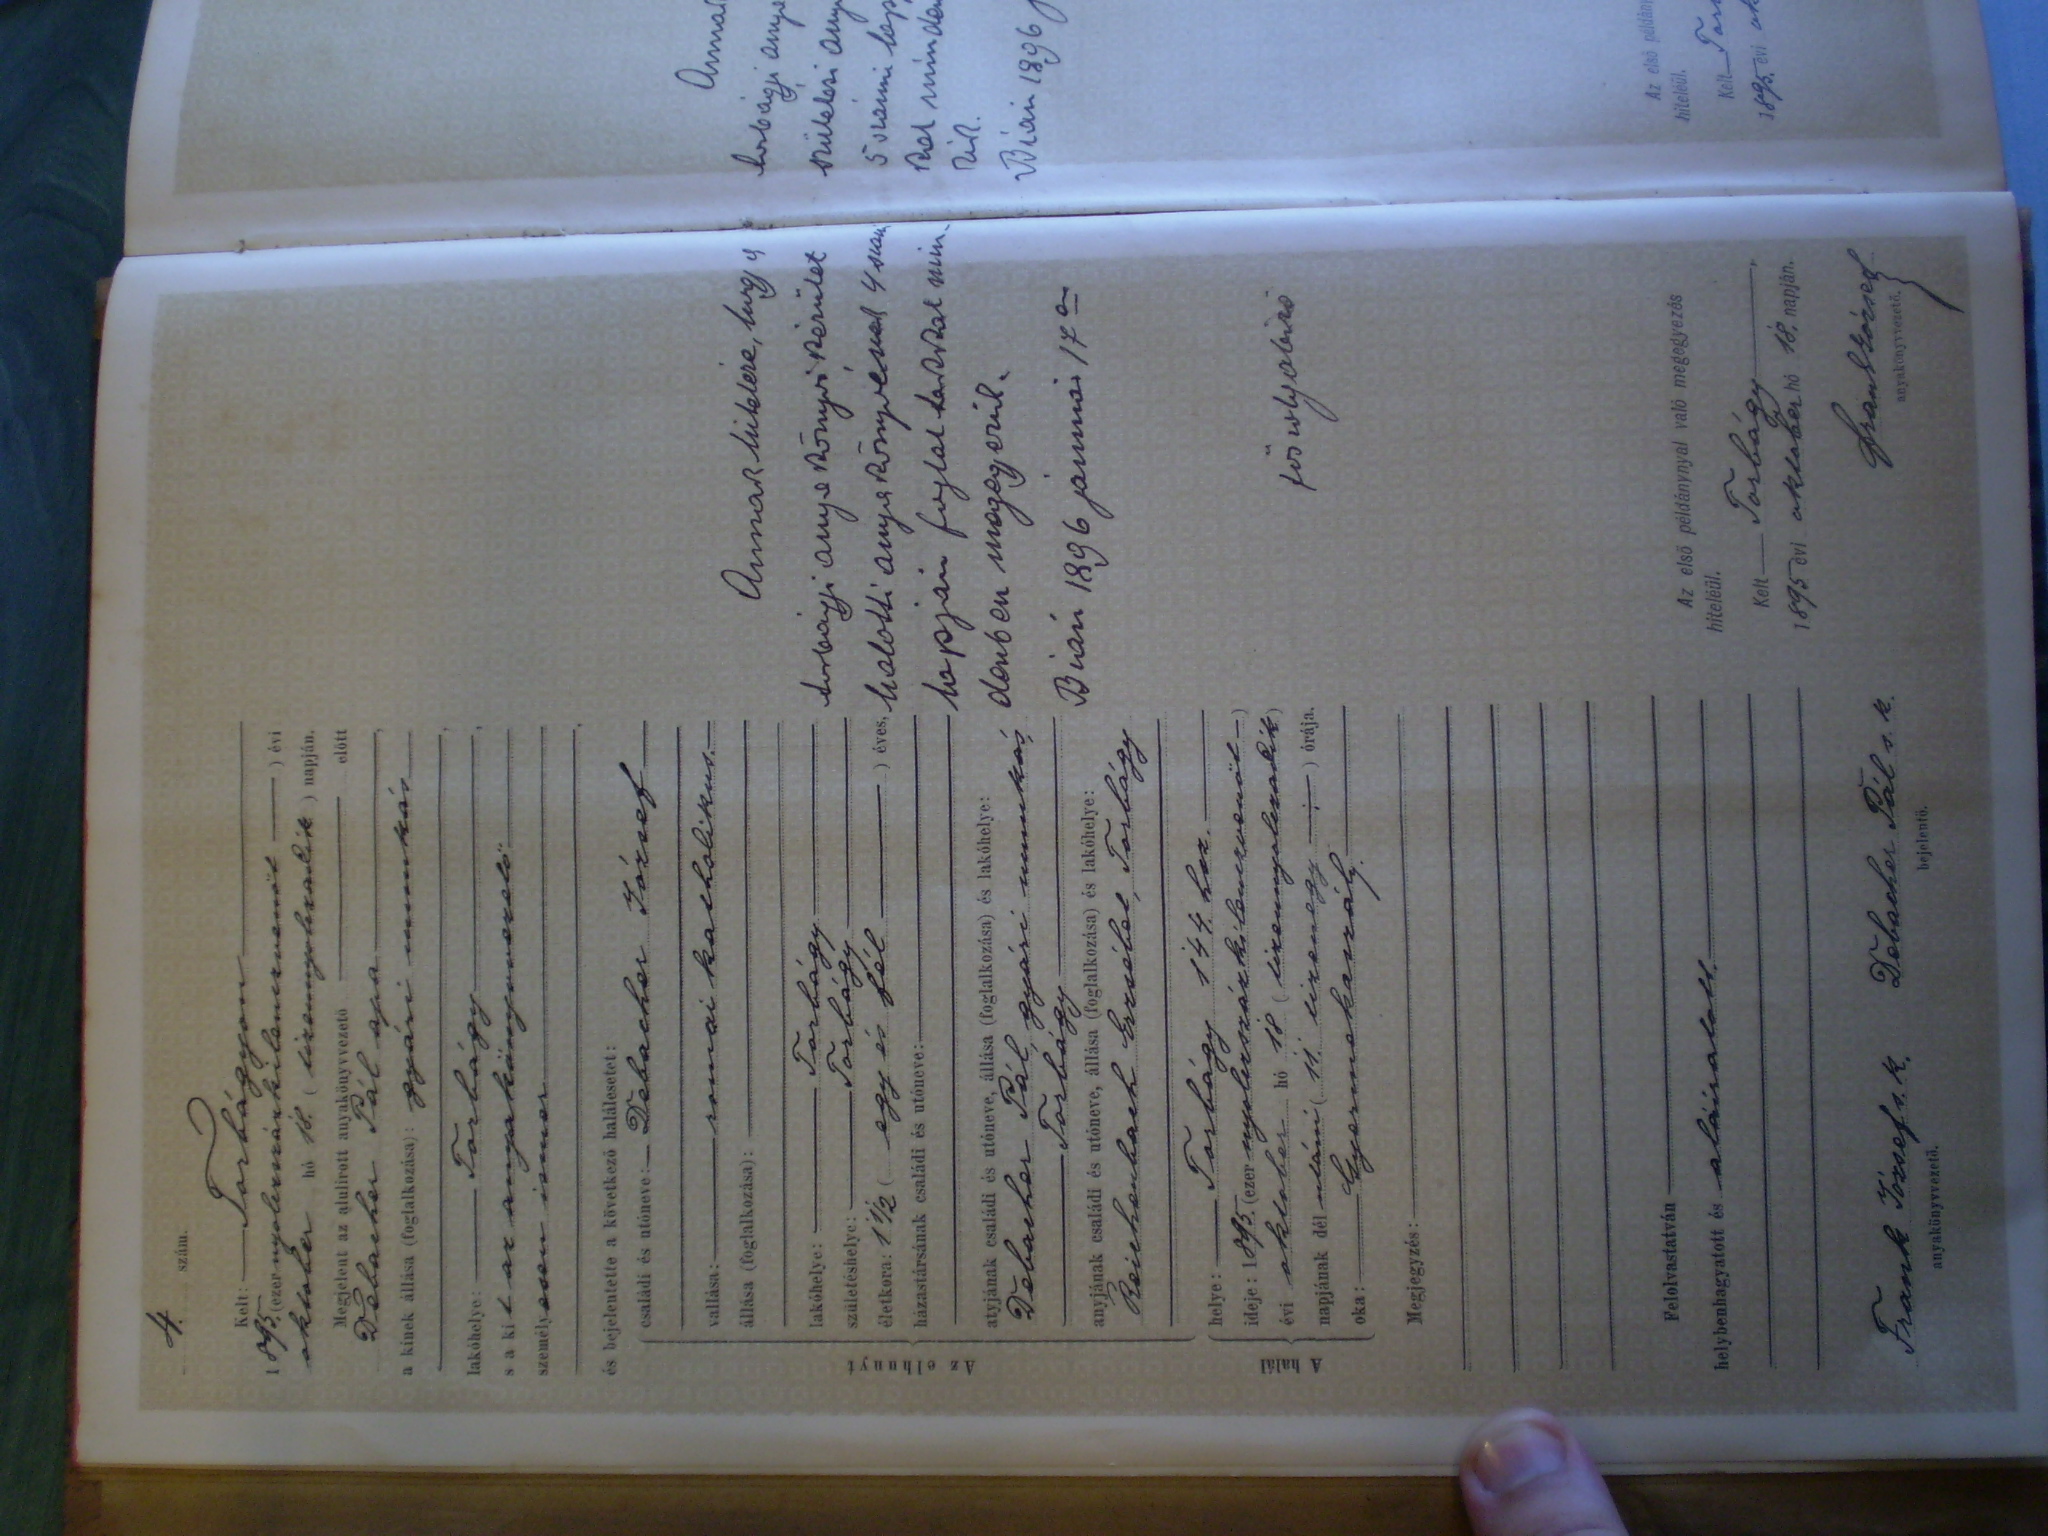 4. szám.
Kelt: Torbágyon
1895. (ezernyolczszázkilenczvenöt) évi
október hó 18. (tizennyolczadik) napján.
Megjelent az alulirott anyakönyvvezető előtt
Debacher Pál apa
a kinek állása (foglalkozása): gyári munkás
lakóhelye: Torbágy
s a kit az anyakönyvvezető
személyesen ismer
és bejelentette a következő halálesetet:
Az elhunyt
családi és utóneve: Debacher József
vallása: romai katholikus.
állása (foglalkozása):
lakóhelye: Torbágy
születéshelye: Torbágy
életkora: 1 1/2 (egy és fél) éves,
házastársának családi és utóneve:
atyjának családi és utóneve, állása (foglalkozása) és lakóhelye:
Debacher Pál, gyári munkás
Torbágy
anyjának családi és utóneve, állása (foglalkozása) és lakóhelye:
Reichenbach Erzsébet, Torbágy
A halál
helye: Torbágy 144. ház.
ideje: 1895. (ezernyolczszázkilenczvenöt)
évi október hó 18 (tizennyolczadik)
napjának dél után (11. tizenegy) órája.
oka: Gyermekaszály.
Megjegyzés:
Felolvastatván
helybenhagyatott és aláiratott.
Frank József s. k.
anyakönyvvezető.
Debacher Pál s. k.
bejelentő.
Annak hitelére, hogy a
torbágyi anyakönyvi kerület
halotti anyakönyvének 4 szám
lapján foglaltakkal min-
denben megegyezik.
Bián 1896 január 17 én
főszolgabiró
Az első példánynyal való megegyezés
hiteléül.
Kelt Torbágy,
1895 évi október hó 18. napján.
Frank József
anyakönyvvezető.
Annak
torbágyi anya
születési any
5 számi lap
kal minden
zik.
Bián 1896 j
Az első példány
hiteléül.
Kelt Tor
1895. évi ok